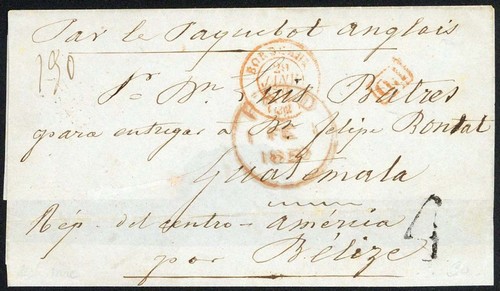 Par le Paquebot anglais
190
Sr. Dn. Luis Batres
para entregar à Mr. felipe Rondat
Guatemala
Rép. del centro-américa
por Bélize
BORDEAUX
PAID
4